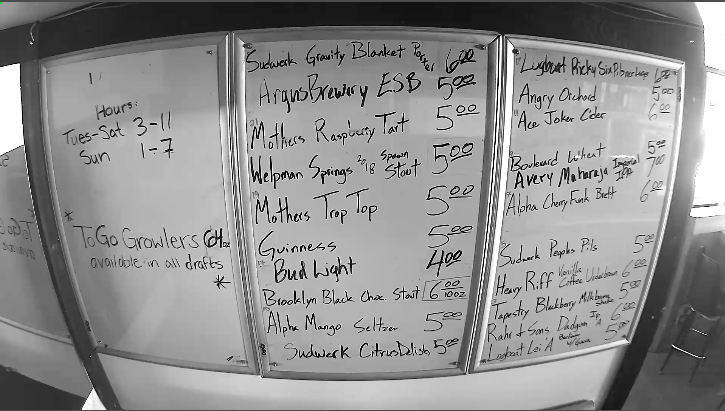 Hours:
Tues-Sat 3-11
Sun 1-7
* ToGo Growlers 64oz
available in all drafts *
Sudwerk Gravity Blanket Porter 6.00
Argus Brewery ESB 5.00
Mothers Raspberry Tart 5.00
Welpman Springs 2/18 Spawn Stout 5.00
Mothers Trop Top 5.00
Guinness 5.00
Bud Light 4.00
Brooklyn Black Choc. Stout 6.00 10oz
Alpha Mango Seltzer 5.00
Sudwerk Citrus Delish 5.00
Logboat Pricky Six Pilsner Lager 6.00
Angry Orchard 5.00
Ace Joker Cider 6.00
Boulevard Wheat 5.00
Avery Maharaja Imperial IPA 7.00
Alpha Cherry Funk Brett 6.00
Sudwerk Peoples Pils 5.00
Heavy Riff Vanilla Coffee 6.00
Tapestry Blackberry 5.00
Rahr & Sons Dadgum IPA 6.00
Logboat Lei A 5.00